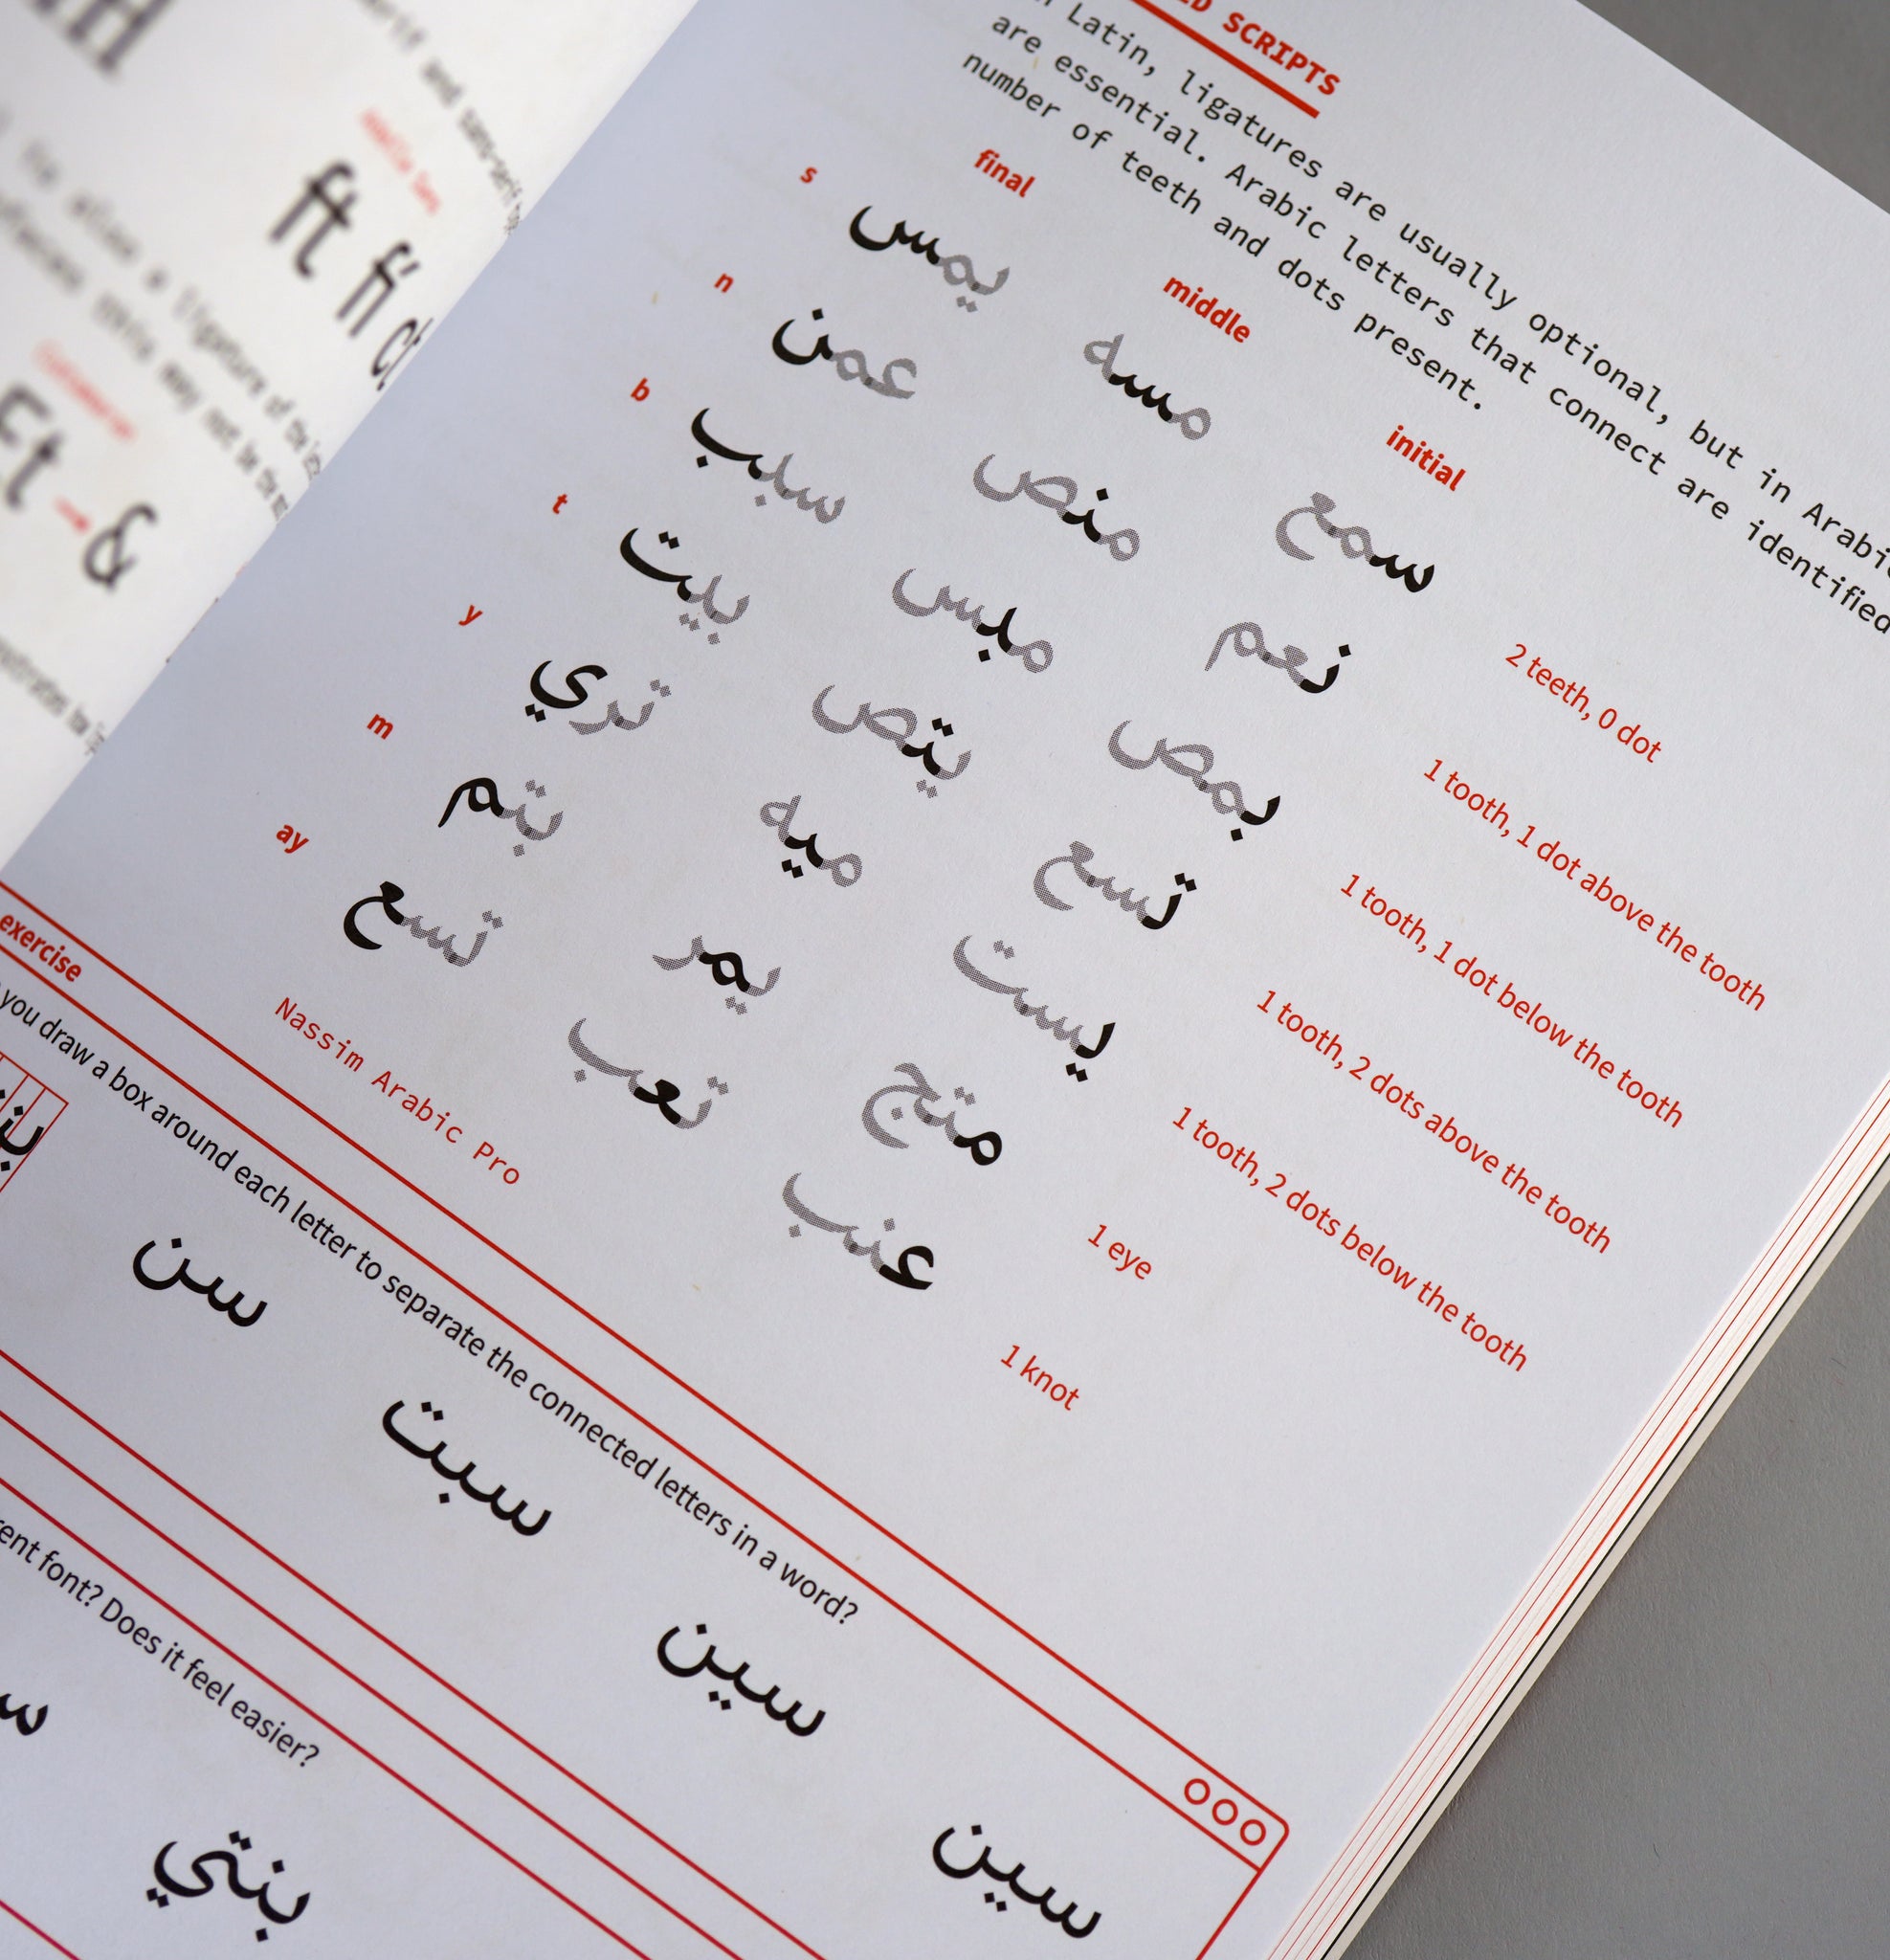 SCRIPTS
Latin, ligatures are usually optional, but in Arabic
are essential. Arabic letters that connect are identified
number of teeth and dots present.
final middle initial
s يمس مسه سمع 2 teeth, 0 dot
n عمن منص نعم 1 tooth, 1 dot above the tooth
b سبب مبس بمص 1 tooth, 1 dot below the tooth
t بيت يتص تسع 1 tooth, 2 dots above the tooth
y تري ميه يست 1 tooth, 2 dots below the tooth
m بتم يمر متج 1 eye
ay تسع تعب عنب 1 knot
Nassim Arabic Pro
exercise
you draw a box around each letter to separate the connected letters in a word?
سن سبت سين سين
font? Does it feel easier?
بنتي
ft fi ct
Et &